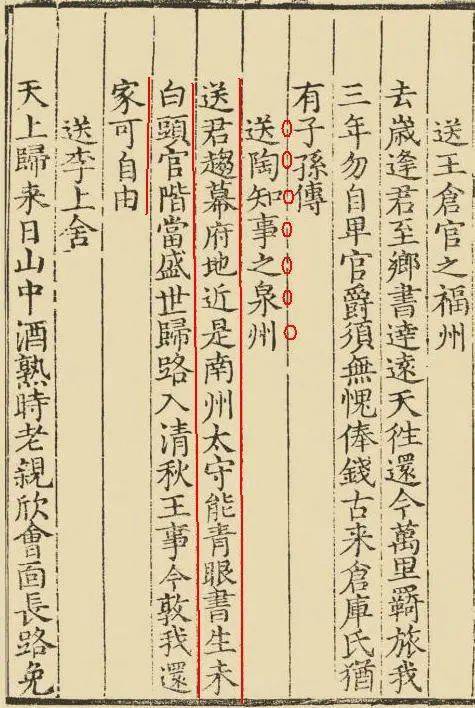 送王倉官之福州
去歲逢君至鄉書達遠天徃還今萬里羇旅我
三年勿自卑官爵須無愧俸錢古来倉庫氏猶
有子孫傳
送陶知事之泉州
送君趨幕府地近是南州太守能青眼書生未
白頭官階當盛世歸路入清秋王事今敦我還
家可自由
送李上舍
天上歸来日山中酒熟時老親欣會面長路免